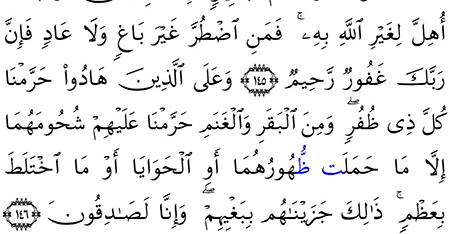 أُهِلَّ لِغَيْرِ ٱللَّهِ بِهِۦۚ فَمَنِ ٱضْطُرَّ غَيْرَ بَاغٍ وَلَا عَادٍ فَإِنَّ
رَبَّكَ غَفُورٌ رَّحِيمٌ ١٤٥ وَعَلَى ٱلَّذِينَ هَادُوا۟ حَرَّمْنَا
كُلَّ ذِى ظُفُرٍۖ وَمِنَ ٱلْبَقَرِ وَٱلْغَنَمِ حَرَّمْنَا عَلَيْهِمْ شُحُومَهُمَا
إِلَّا مَا حَمَلَت ظُّهُورُهُمَا أَوِ ٱلْحَوَايَا أَوْ مَا ٱخْتَلَطَ
بِعَظْمٍۚ ذَٰلِكَ جَزَيْنَـٰهُم بِبَغْيِهِمْۖ وَإِنَّا لَصَـٰدِقُونَ ١٤٦